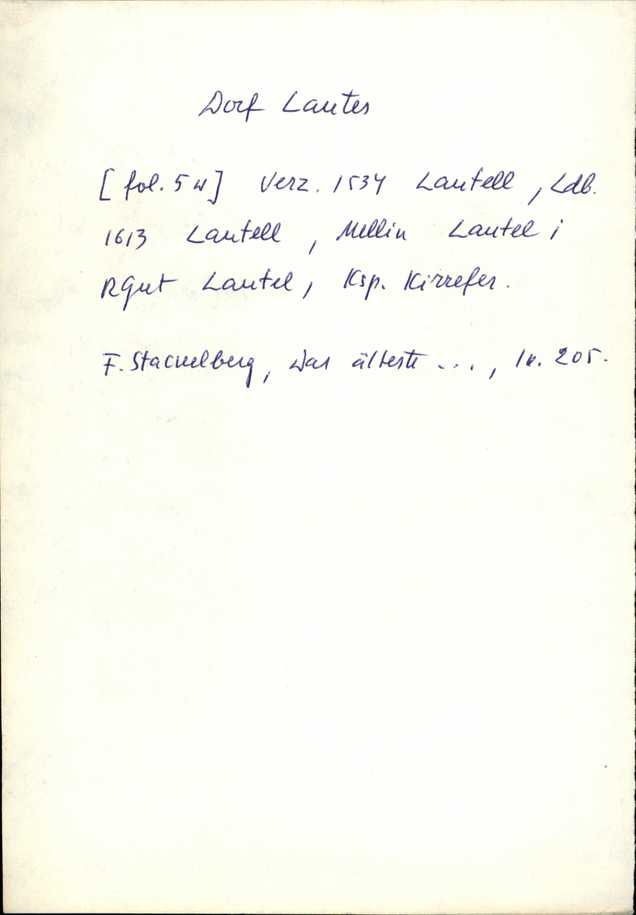 Dorf Lautes
[fol. 5 v] Verz. 1534 Lautell, Ldb.
1613 Lautell, Mellin Lautel;
RGut Lautel, Ksp. Kirrefer.
F. Stackelberg, Das älteste ..., lk. 205.